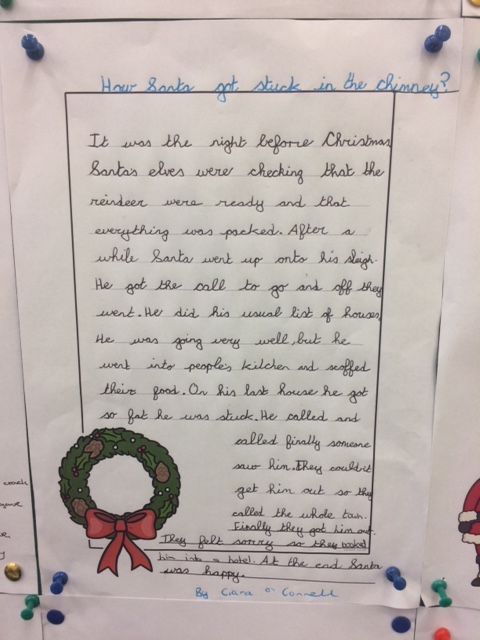 How Santa got stuck in the chimney?
It was the night before Christmas
Santas elves were checking that the
reindeer were ready and that
everything was packed. After a
while Santa went up onto his sleigh.
He got the call to go and off they
went. He did his usual list of houses,
He was going very well, but he
went into people's kitchen and scoffed
their food. On his last house he got
so fat he was stuck. He called and
called finally someone
saw him. They couldn't
get him out so they
called the whole town.
Finally they got him out.
They felt sorry so they booked
him into a hotel. At the end Santa
was happy.
By Ciara O'Connell